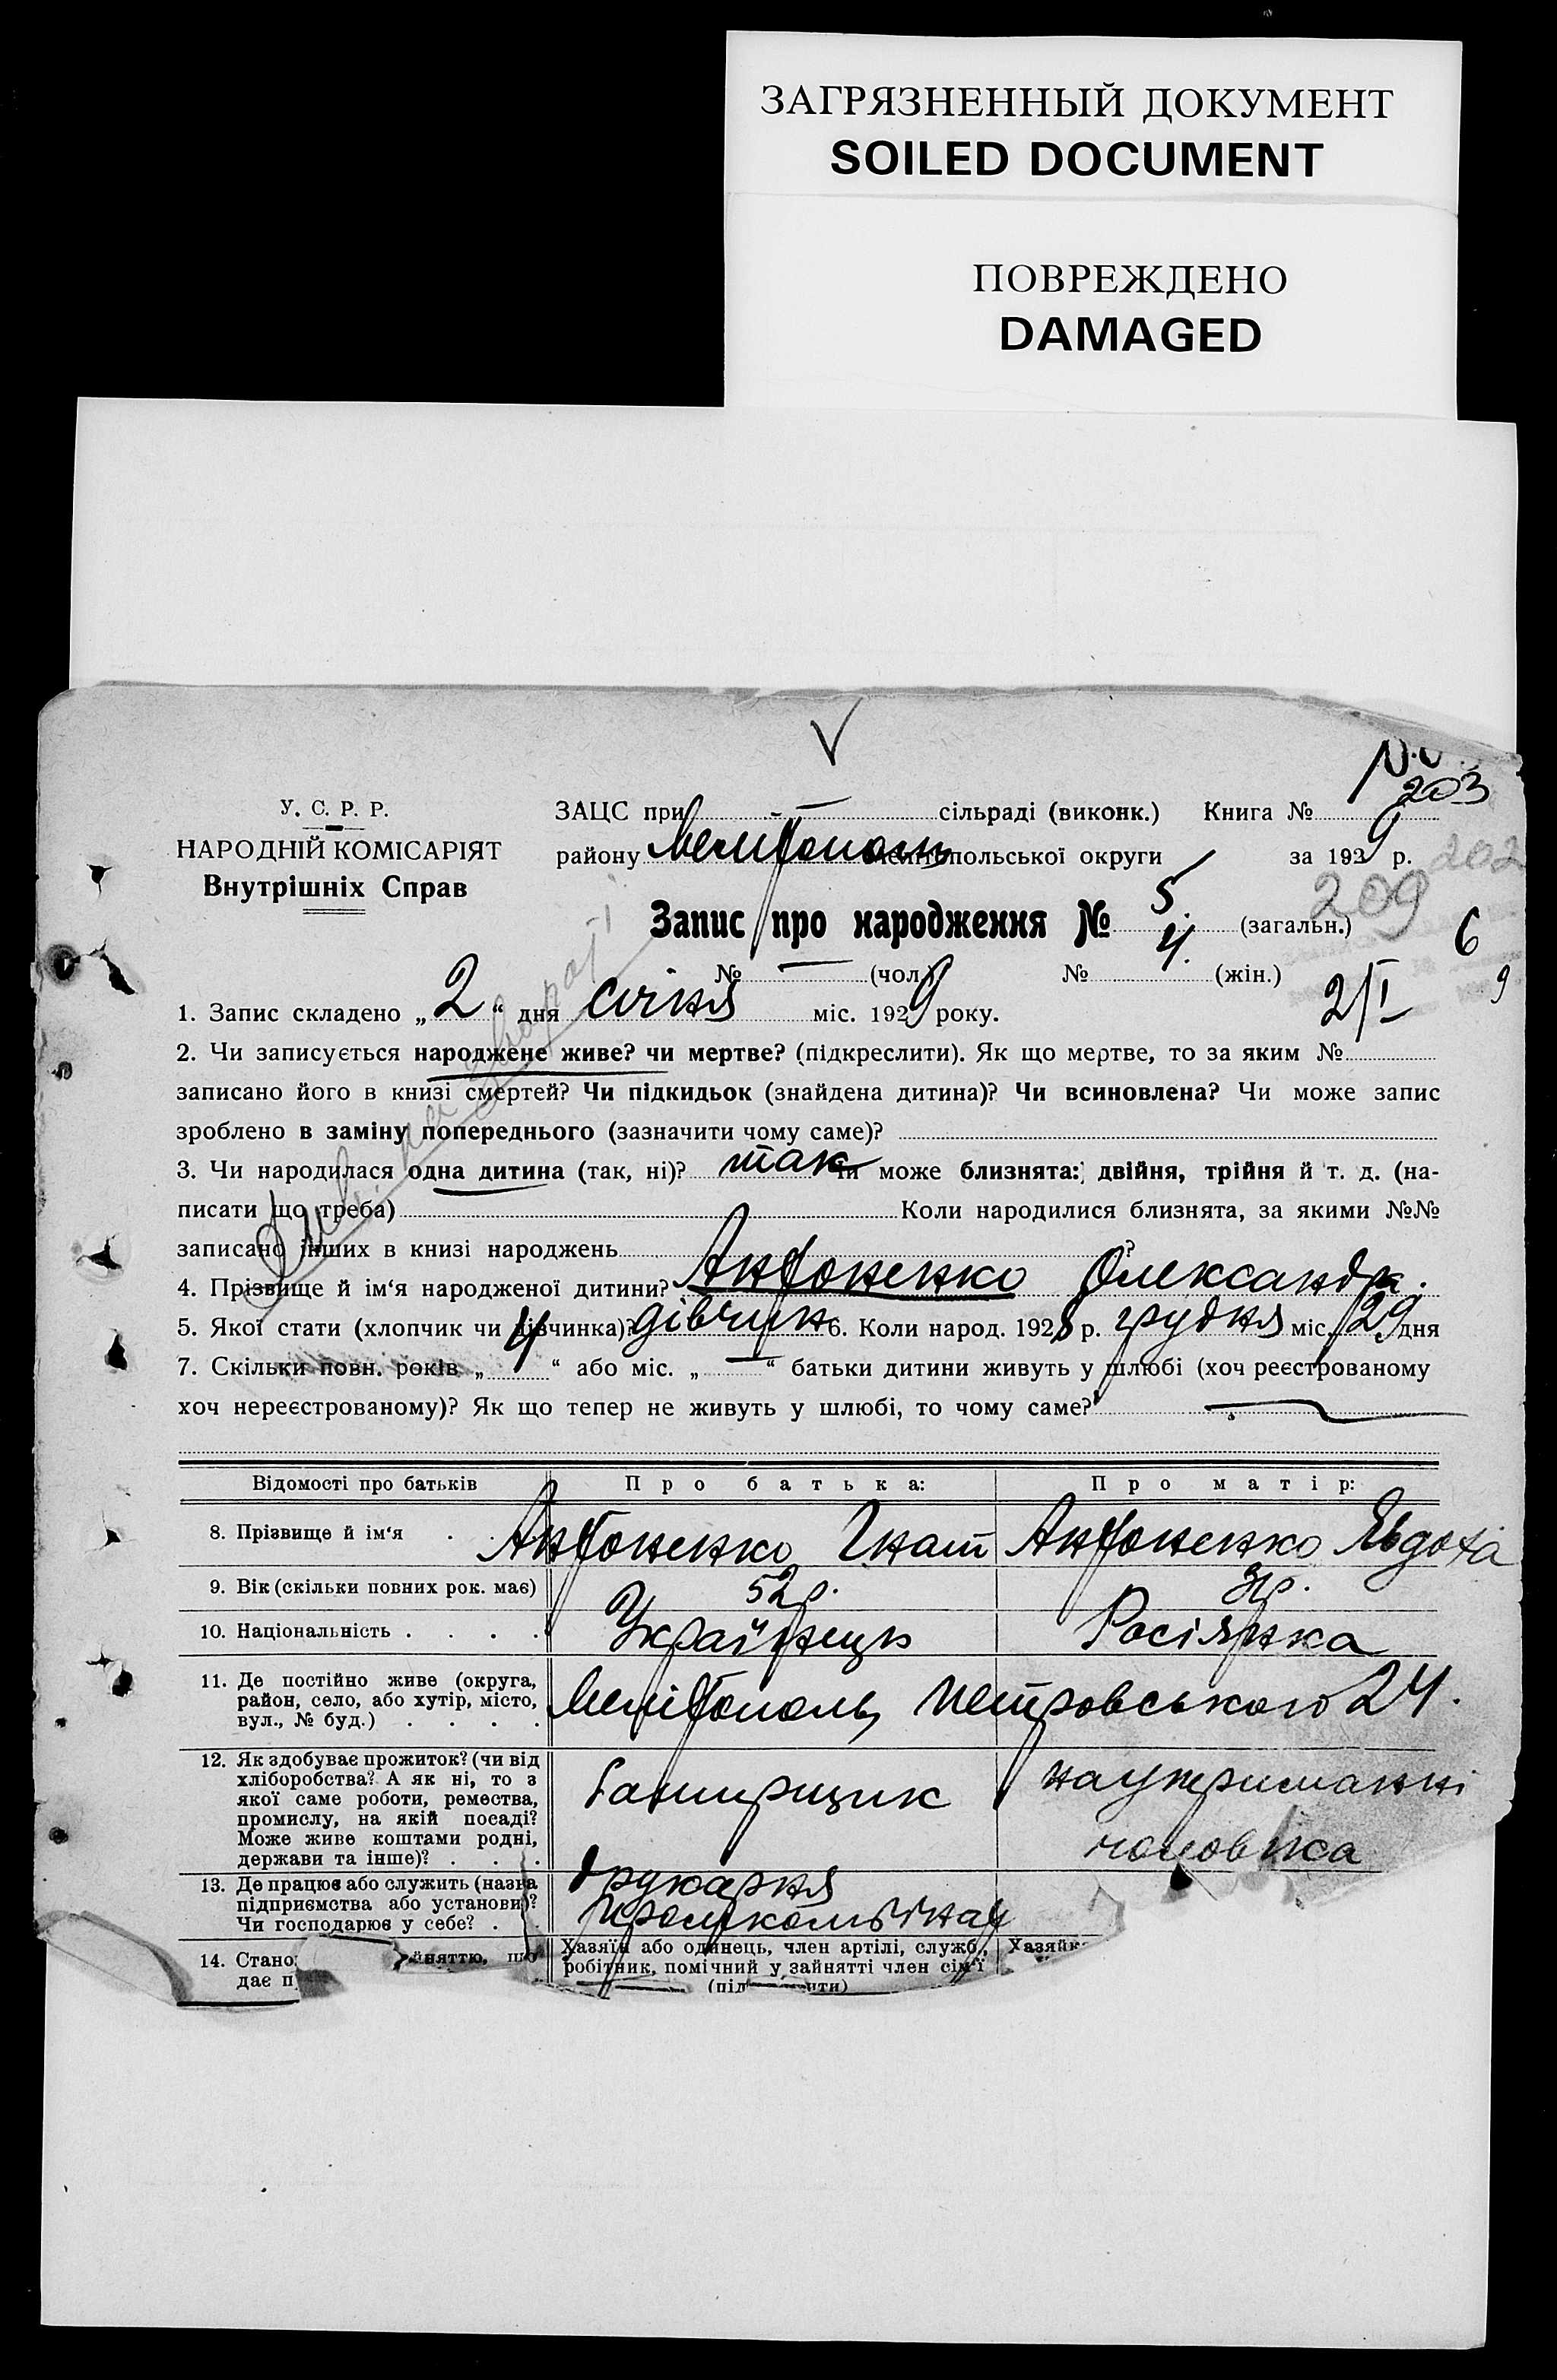 ЗАГРЯЗНЕННЫЙ ДОКУМЕНТ
SOILED DOCUMENT
ПОВРЕЖДЕНО
DAMAGED
203
У. С. Р. Р.
НАРОДНІЙ КОМІСАРІЯТ
Внутрішніх Справ
ЗАЦС при - — сільраді (виконк.) Книга №
району Мелітополь Мелітопольської округи за 1929 р. 202
209
Запис про народження № 5. (загальн.)
6
№ — (чол.) № 4. (жін.)
2/I 9
1. Запис складено „2“ дня січня міс. 1929 року.
2. Чи записується народжене живе? чи мертве? (підкреслити). Як що мертве, то за яким №
записано його в книзі смертей? Чи підкидьок (знайдена дитина)? Чи всиновлена? Чи може запис
зроблено в заміну попереднього (зазначити чому саме)?
3. Чи народилася одна дитина (так, ні)? так Чи може близнята: двійня, трійня й т. д. (на-
писати що треба) Коли народилися близнята, за якими №№
записано інших в книзі народжень ?
4. Прізвище й ім‘я народженої дитини? Антоненко Олександра.
5. Якої стати (хлопчик чи дівчинка)? дівчинка 6. Коли народ. 1928 р. грудня міс. 29 дня
7. Скільки повн. років „4“ або міс. „—“ батьки дитини живуть у шлюбі (хоч реєстрованому
хоч нереєстрованому)? Як що тепер не живуть у шлюбі, то чому саме?
Відомості про батьків Про батька: Про матір:
8. Прізвище й ім‘я . . Антоненко Гнат Антоненко Явдоха
9. Вік (скільки повних рок. має) 52 р.
10. Національність . . . . Українець Росіянка
11. Де постійно живе (округа,
район, село, або хутір, місто,
вул., № буд.) . . . .
Мелітополь, Петровського 24.
12. Як здобуває прожиток? (чи від
хліборобства? А як ні, то з
якої саме роботи, ремества,
промислу, на якій посаді?
Може живе коштами родні,
держави та інше)? . . .
на утриманні
чоловіка
13. Де працює або служить (назва
підприємства або установи)?
Чи господарює у себе? . .
друкарня
Промкомбінат
14. Стано йняттю, що
дає п
Хазяїн або одинець, член артілі, служб.,
робітник, помічний у зайнятті член сім‘ї
(під ити)
Хазяйк